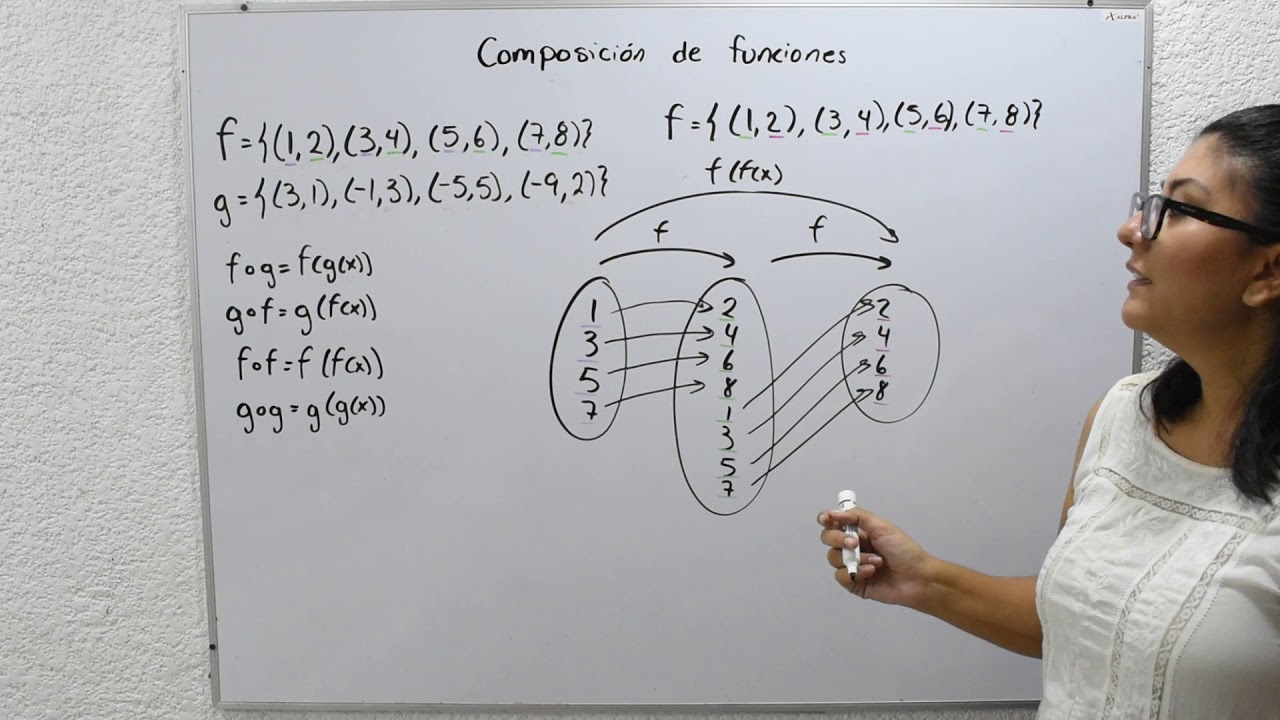 ALFRA
Composición de funciones
f={(1,2),(3,4),(5,6),(7,8)}
g={(3,1),(-1,3),(-5,5),(-9,2)}
f∘g=f(g(x))
g∘f=g(f(x))
f∘f=f(f(x))
g∘g=g(g(x))
f={(1,2),(3,4),(5,6),(7,8)}
f(f(x)
f
f
1
3
5
7
2
4
6
8
1
3
5
7
2
4
6
8